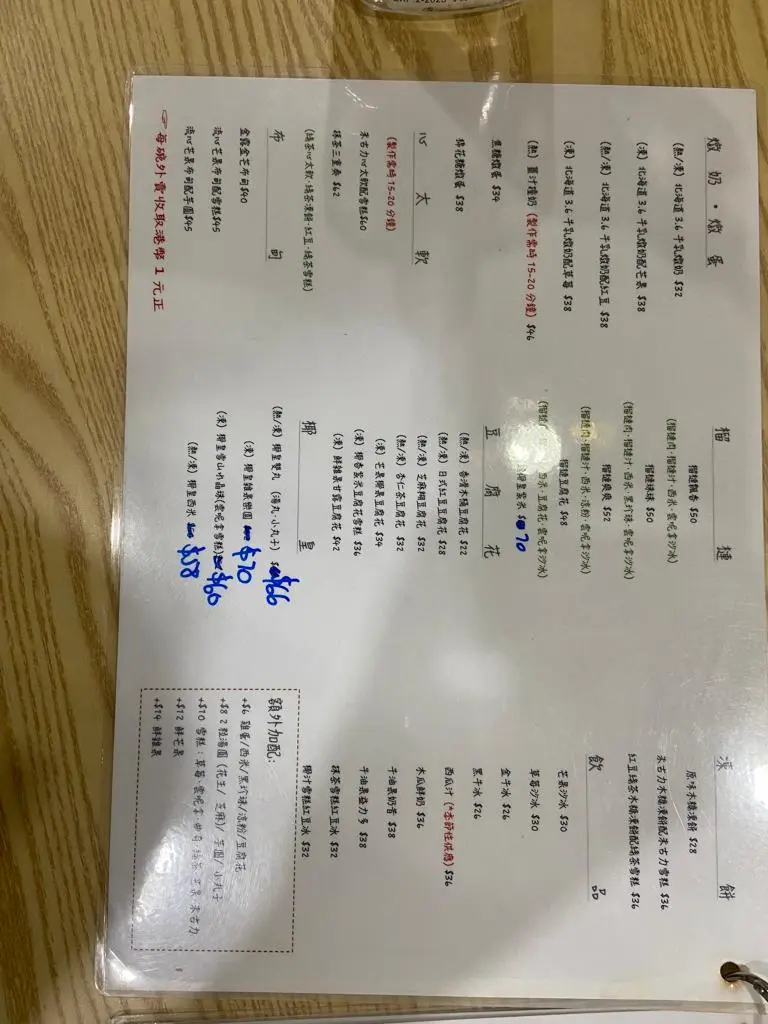 燉奶・燉蛋
(熱/凍) 北海道 3.6 牛乳燉奶 $32
(凍) 北海道 3.6 牛乳燉奶配芒果 $38
(熱/凍) 北海道 3.6 牛乳燉奶配紅豆 $38
(凍) 北海道 3.6 牛乳燉奶配草莓 $38
(熱) 薑汁撞奶 (製作需時 15-20 分鐘) $46
焦糖燉蛋 $34
棉花糖燉蛋 $38
心太軟
(製作需時 15-20 分鐘)
朱古力心太軟配雪糕$60
抹茶三重奏 $62
(綠茶心太軟·綠茶凍餅·紅豆·綠茶雪糕)
布甸
金露金芒布甸$40
流心芒果布甸配雪糕$45
流心芒果布甸配芋圓$45
☞ 每碗外賣收取港幣 1 元正
榴槤
榴槤飄香 $50
(榴槤肉·榴槤汁·西米·雲呢拿沙冰)
榴槤珠珠 $50
(榴槤肉·榴槤汁·西米·黑珍珠·雲呢拿沙冰)
榴槤魚爽 $52
(榴槤肉·榴槤汁·西米·涼粉·雲呢拿沙冰)
榴槤豆腐花 $48
(榴槤肉 西米·豆腐花·雲呢拿沙冰)
椰紫米 $70
豆腐花
(熱/凍) 香滑木桶豆腐花 $22
(熱/凍) 日式紅豆豆腐花 $28
(熱/凍) 芝麻糊豆腐花 $32
(熱/凍) 杏仁茶豆腐花 $32
(凍) 芒果椰果豆腐花 $34
(凍) 椰香紫米豆腐花雪糕 $36
(凍) 鮮雜果甘露豆腐花 $42
椰皇
(熱/凍) 椰皇雙丸 (湯丸·小丸子) $66
(凍) 椰皇雜果樂園 $70
(凍) 椰皇雪山水晶球(雲呢拿雪糕) $60
(熱/凍) 椰皇西米 $58
凍餅
原味木糠凍餅 $28
朱古力木糠凍餅配朱古力雪糕 $36
紅豆綠茶木糠凍餅配綠茶雪糕 $36
飲品
芒果沙冰 $30
草莓沙冰 $30
金才冰 $26
黑牛冰 $26
西瓜汁 (*季節性供應) $36
木瓜鮮奶 $36
牛油果奶昔 $38
牛油果益力多 $38
抹茶雪糕紅豆冰 $32
椰汁雪糕紅豆冰 $32
額外加配:
+$6 雞蛋/西米/黑珍珠/涼粉/豆腐花
+$8 2 粒湯圓 (花生/ 芝麻)/ 芋圓/ 小丸子
+$10 雪糕：草莓·雲呢拿·曲奇·綠茶·芒果·朱古力
+$12 鮮芒果
+$14 鮮雜果